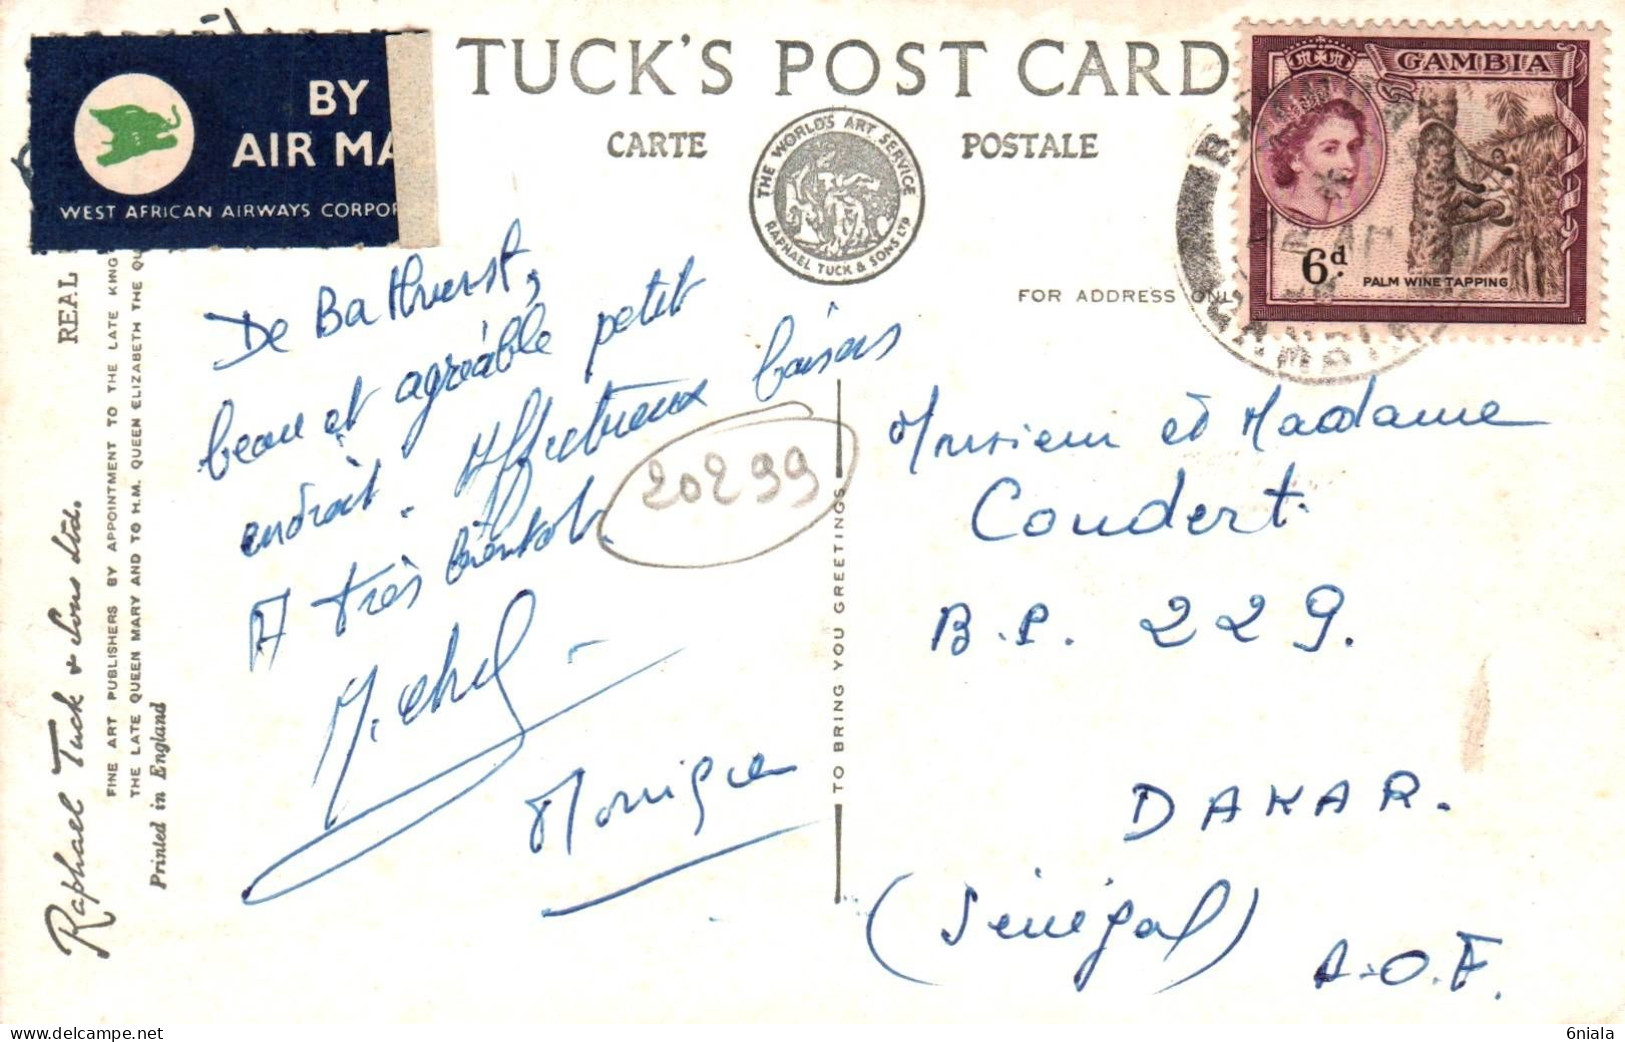 TUCK'S POST CARD
CARTE POSTALE
THE WORLD'S ART SERVICE
RAPHAEL TUCK & SONS LTD
BY
AIR MA
WEST AFRICAN AIRWAYS CORPOR
GAMBIA
6d.
PALM WINE TAPPING
GAMBIA
FOR ADDRESS ONL
De Bathurst,
beau et agréable petit
endroit. Affectueux baisers
A très bientôt.
Michel
Monique
20299
Monsieur et Madame
Coudert.
B.P. 229.
DAKAR.
(Sénégal)
A.O.F.
TO BRING YOU GREETINGS
REAL
Raphael Tuck & Sons Ltd.
FINE ART PUBLISHERS BY APPOINTMENT TO THE LATE KING
THE LATE QUEEN MARY AND TO H.M. QUEEN ELIZABETH THE QU
Printed in England
6niala